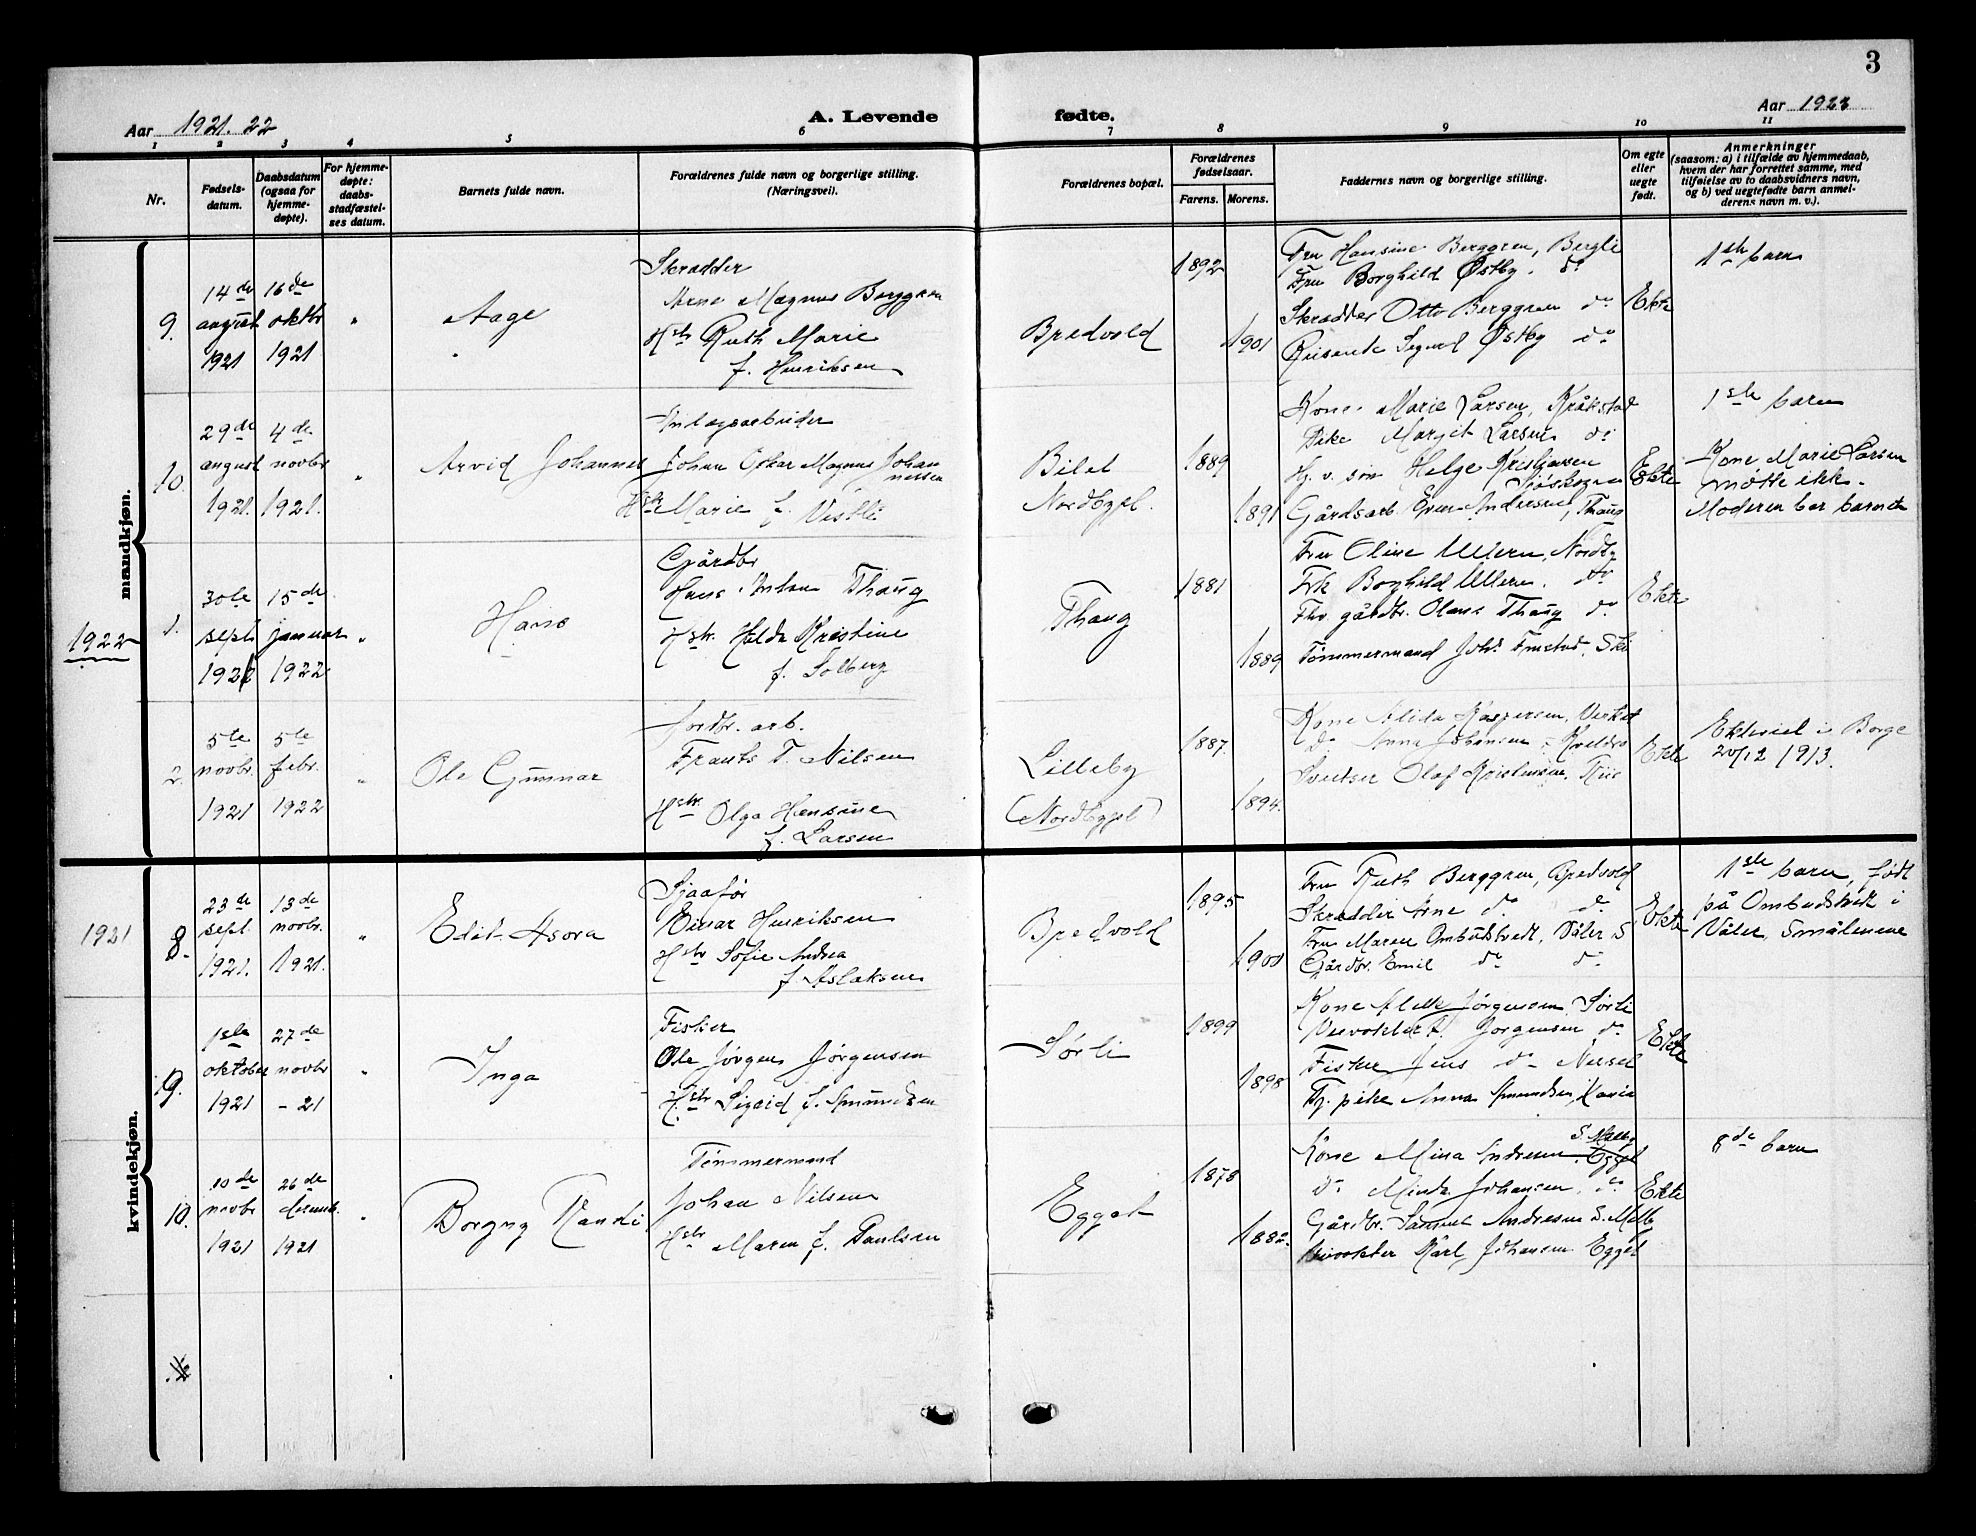 3
Aar 1921. 22
A. Levende
fødte.
Aar 1922
1 2 3 4 5 6 7 8 9 10 11
Nr.
Fødsels-
datum.
Daabsdatum
(ogsaa for
hjemme-
døpte).
For hjemme-
døpte:
daabs-
stadfæstel-
ses datum.
Barnets fulde navn.
Forældrenes fulde navn og borgerlige stilling.
(Næringsvei).
Forældrenes bopæl.
Forældrenes
fødselsaar.
Farens. Morens.
Faddernes navn og borgerlige stilling.
Om egte
eller
uegte
født.
Anmerkninger
(saasom: a) i tilfælde av hjemmedaab,
hvem der har forrettet samme, med
tilføielse av to daabsvidners navn,
og b) ved uegtefødte barn anmel-
derens navn m. v.).
mandkjøn.
9.
14de
august
1921
16de
oktbr
1921
"
Aage
Skrædder
Arne Magnus Berggren
Hstr Ruth Marie
f. Henriksen
Bredvold
1892
1901
Fru Hansine Berggren, Bergli
Fru Borghild Østby. do
Skrædder Otto Berggren do
Reisende Sigurd Østby do
Ekte
1ste barn
10.
29de
august
1921.
4de
novbr
1921.
"
Arvid Johannes
Johan Oskar Magnus Johan
nessen
Hstr Marie f. Vestli
Bilet
Nordbygd.
1889
1891
Kone Marie Larsen, Kråkstad
Pike Margit Larsen do
Hj. v. søn Helge Kristiansen
Gårdsarb. Andersen, Thaug
Ekte
1ste barn
Kone Marie Larsen
møtte ikke.
Moderen bar barnet
1922
1.
30te
sept.
1921
15de
januar
1922
"
Hans
Gårdbr
Hans Anton Thaug
Hstr. Hilda Kristine
f. Solberg
Thaug
1881
1889
Fru Oline Ullern, Nordby
Frk Borghild Ullern. do
Fhv. gårdbr. Olaus Thaug do
Tømmermand Johs Ski
Ekte
2.
5te
novbr.
1921
5te
febr.
1922
"
Ole Gunnar
Jordbr. arb.
Frants T. Nilsen
Hstr. Olga Hansine
f. Larsen
Lilleby
(Nordbygd)
1887.
1894.
Kone Alida Kaspersen,
do Anna Johansen
Sveitser Olaf Kristensen, Riis
Ekte
Ekteviet i Borge
20/12 1913.
kvindekjøn.
1921
8.
23de
sept.
1921.
13de
novbr.
1921.
"
Edit Asora
Sjaafør
Einar Henriksen
Hstr Sofie Andrea
f. Aslaksen
Bredvold
1895
1900
Fru Ruth Berggren, Bredvold
Skrædder Arne do do
Fru Maren Ombudstvedt, Våler S
Gårdbr. Emil do do
Ekte
1ste barn, født
på Ombudstvedt i
Våler, Smålenene
9.
1ste
oktober
1921
27de
novbr
- 21
"
Inga
Fisker
Ole Jørgen Jørgensen
Hstr Sigrid f. Amundsen
Sørli
1899
1898
Kone Jørgensen Sørli
Veivokter A. Jørgensen do
Fisker Jens do
Tj. pike Anna Amundsen,
Ekte
10.
10de
novbr
1921
26de
desemb.
1921
"
Borgny Randi
Tømmermand
Johan Nilsen
Hstr Maren f. Paulsen
Egget
1878
1882.
S. Mælby
Kone Mina Andresen, Egget
do Minda Johansen, do
Gårdbr. Samuel Andresen S. Melby
Veivokter Karl Johansen Egget
Ekte
8de barn